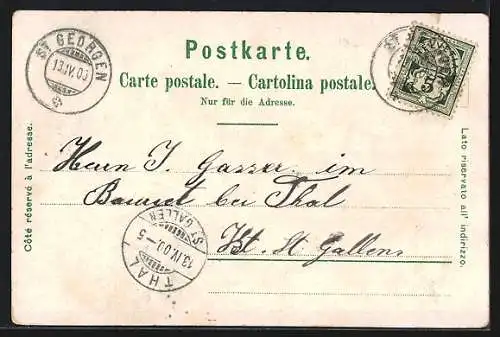 ST GEORGEN
13.IV.03
Postkarte.
Carte postale. — Cartolina postale.
Nur für die Adresse.
Côté réservé à l'adresse.
Lato riservato all' indirizzo.
Herrn J. Gasser im
bei Thal
Kt. St. Gallen
THAL
13.IV.03.-5
ST GALLEN